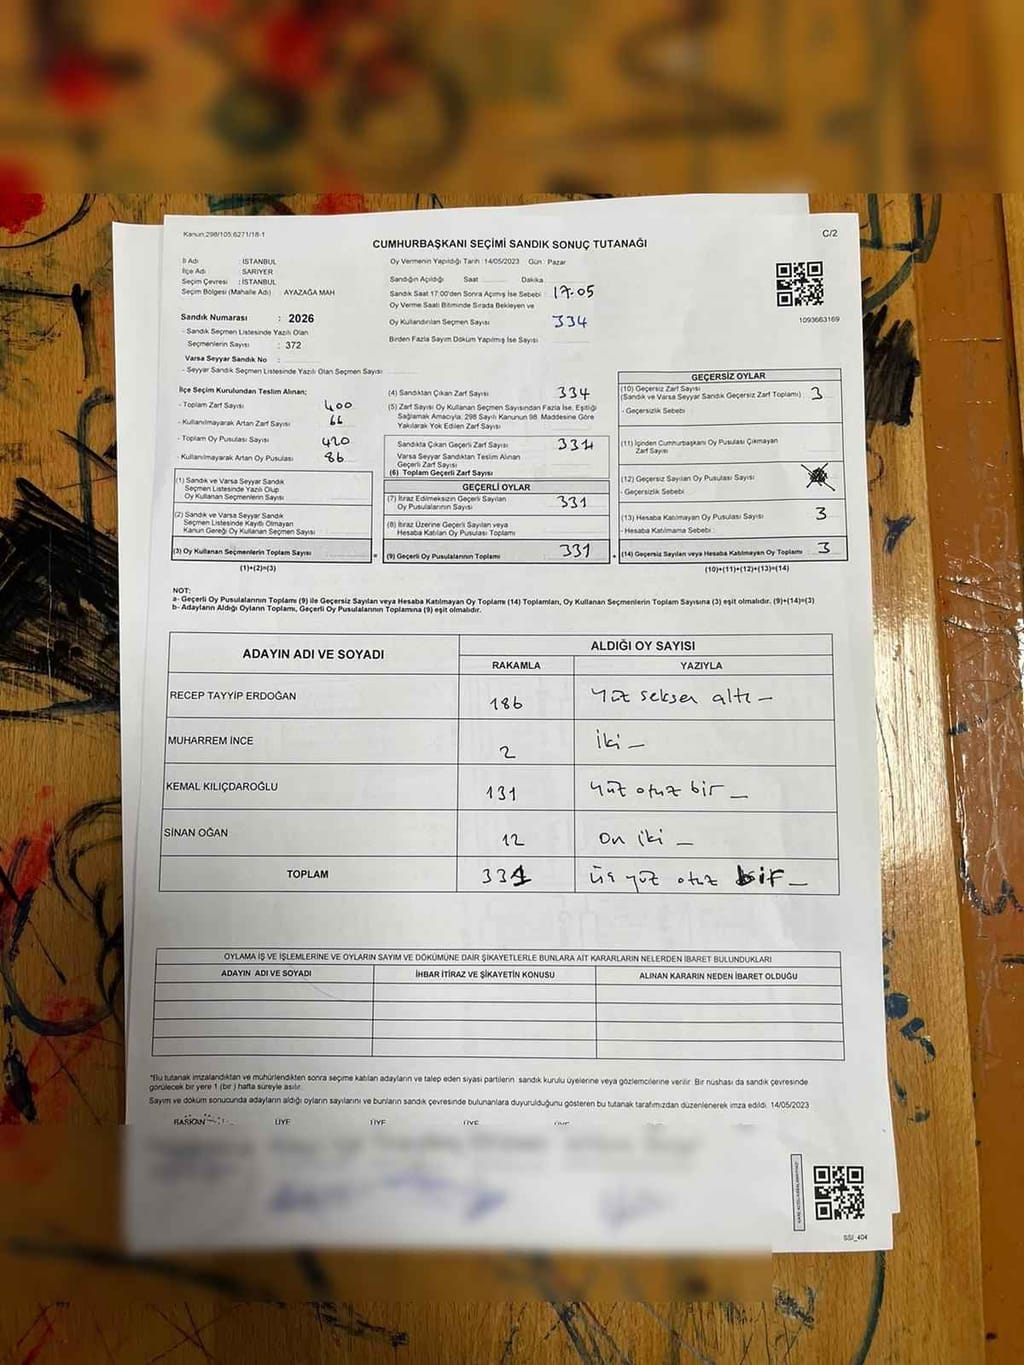 Kanun:298/105;6271/18-1
C/2
CUMHURBAŞKANI SEÇİMİ SANDIK SONUÇ TUTANAĞI
İl Adı : İSTANBUL
İlçe Adı : SARIYER
Seçim Çevresi : İSTANBUL
Seçim Bölgesi (Mahalle Adı) : AYAZAĞA MAH
Sandık Numarası : 2026
- Sandık Seçmen Listesinde Yazılı Olan
Seçmenlerin Sayısı : 372
Varsa Seyyar Sandık No :
- Seyyar Sandık Seçmen Listesinde Yazılı Olan Seçmen Sayısı :
Oy Vermenin Yapıldığı Tarih :14/05/2023 Gün : Pazar
Sandığın Açıldığı Saat Dakika
Sandık Saat 17:00'den Sonra Açılmış İse Sebebi : 17.05
Oy Verme Saati Bitiminde Sırada Bekleyen ve
Oy Kullandırılan Seçmen Sayısı 334
Birden Fazla Sayım Döküm Yapılmış İse Sayısı
1093663169
İlçe Seçim Kurulundan Teslim Alınan;
- Toplam Zarf Sayısı 400
- Kullanılmayarak Artan Zarf Sayısı 66
- Toplam Oy Pusulası Sayısı 420
- Kullanılmayarak Artan Oy Pusulası 86
(1) Sandık ve Varsa Seyyar Sandık
Seçmen Listesinde Yazılı Olup
Oy Kullanan Seçmenlerin Sayısı
(2) Sandık ve Varsa Seyyar Sandık
Seçmen Listesinde Kayıtlı Olmayan
Kanun Gereği Oy Kullanan Seçmen Sayısı
(3) Oy Kullanan Seçmenlerin Toplam Sayısı
(1)+(2)=(3)
(4) Sandıktan Çıkan Zarf Sayısı 334
(5) Zarf Sayısı Oy Kullanan Seçmen Sayısından Fazla İse, Eşitliği
Sağlamak Amacıyla; 298 Sayılı Kanunun 98. Maddesine Göre
Yakılarak Yok Edilen Zarf Sayısı
Sandıkta Çıkan Geçerli Zarf Sayısı
Varsa Seyyar Sandıktan Teslim Alınan
Geçerli Zarf Sayısı
(6) Toplam Geçerli Zarf Sayısı
GEÇERLİ OYLAR
(7) İtiraz Edilmeksizin Geçerli Sayılan
Oy Pusulalarının Sayısı 331
(8) İtiraz Üzerine Geçerli Sayılan veya
Hesaba Katılan Oy Pusulası Toplamı
= (9) Geçerli Oy Pusulalarının Toplamı 331
GEÇERSİZ OYLAR
(10) Geçersiz Zarf Sayısı
(Sandık ve Varsa Seyyar Sandık Geçersiz Zarf Toplamı) 3
- Geçersizlik Sebebi :
(11) İçinden Cumhurbaşkanı Oy Pusulası Çıkmayan
Zarf Sayısı
(12) Geçersiz Sayılan Oy Pusulası Sayısı
- Geçersizlik Sebebi :
(13) Hesaba Katılmayan Oy Pusulası Sayısı 3
- Hesaba Katılmama Sebebi :
+ (14) Geçersiz Sayılan veya Hesaba Katılmayan Oy Toplamı 3
(10)+(11)+(12)+(13)=(14)
NOT:
a- Geçerli Oy Pusulalarının Toplamı (9) ile Geçersiz Sayılan veya Hesaba Katılmayan Oy Toplamı (14) Toplamları, Oy Kullanan Seçmenlerin Toplam Sayısına (3) eşit olmalıdır. (9)+(14)=(3)
b- Adayların Aldığı Oyların Toplamı, Geçerli Oy Pusulalarının Toplamına (9) eşit olmalıdır.
ADAYIN ADI VE SOYADI ALDIĞI OY SAYISI
RAKAMLA YAZIYLA
RECEP TAYYİP ERDOĞAN 186 Yüz seksen altı –
MUHARREM İNCE 2 iki –
KEMAL KILIÇDAROĞLU 131 Yüz otuz bir –
SİNAN OĞAN 12 on iki –
TOPLAM 331 üç yüz otuz bir –
OYLAMA İŞ VE İŞLEMLERİNE VE OYLARIN SAYIM VE DÖKÜMÜNE DAİR ŞİKAYETLERLE BUNLARA AİT KARARLARIN NELERDEN İBARET BULUNDUKLARI
ADAYIN ADI VE SOYADI İHBAR İTİRAZ VE ŞİKAYETİN KONUSU ALINAN KARARIN NEDEN İBARET OLDUĞU
*Bu tutanak imzalandıktan ve mühürlendikten sonra seçime katılan adayların ve talep eden siyasi partilerin sandık kurulu üyelerine veya gözlemcilerine verilir. Bir nüshası da sandık çevresinde
görülecek bir yere 1 (bir ) hafta süreyle asılır.
Sayım ve döküm sonucunda adayların aldığı oyların sayılarını ve bunların sandık çevresinde bulunanlara duyurulduğunu gösteren bu tutanak tarafımızdan düzenlenerek imza edildi. 14/05/2023
BAŞKAN ÜYE ÜYE ÜYE ÜYE
SSI_404